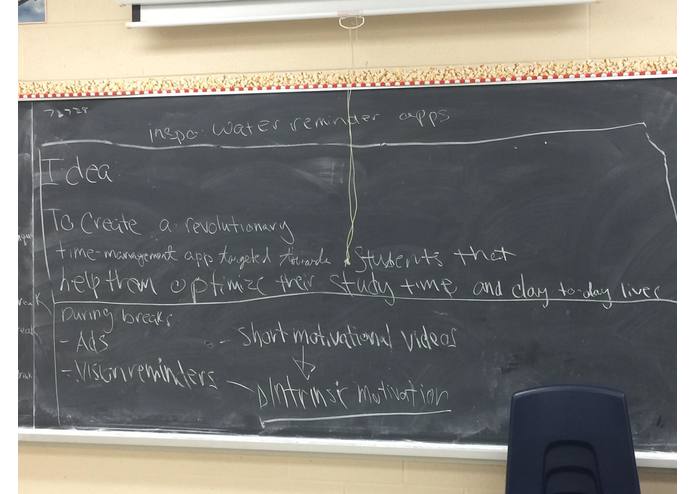 inspo: water reminder apps
Idea
To Create a revolutionary
time-management app targeted towards students that
help them optimize their study time and day-to-day lives
During breaks
- Ads - short motivational videos
- Vision reminders - Intrinsic motivation